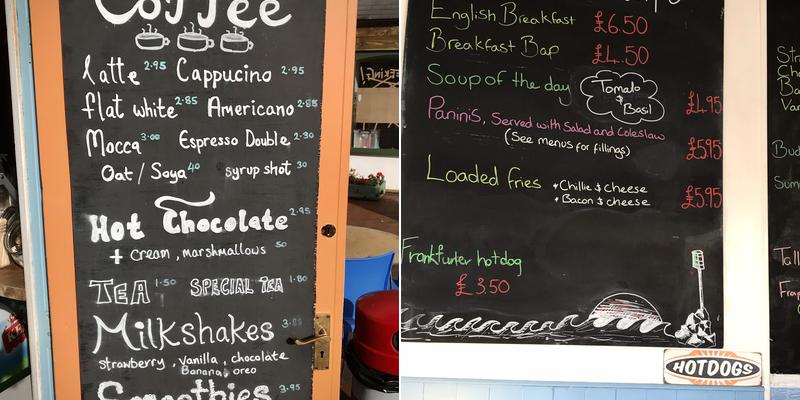 Coffee
Latte 2.95 Cappucino 2.95
flat white 2.85 Americano 2.85
Mocca 3.00 Espresso Double 2.30
Oat / Soya 40 syrup shot 30
Hot Chocolate 2.95
+ Cream, marshmallows 50
TEA 1.50 SPECIAL TEA 1.80
Milkshakes
strawberry, vanilla, chocolate
Banana, oreo
Smoothies 3.95
English Breakfast £6.50
Breakfast Bap £4.50
Soup of the day Tomato & Basil £4.95
Paninis, Served with Salad and Coleslaw £5.95
(See menus for fillings)
Loaded fries *Chillie & cheese £5.95
*Bacon & cheese
Frankfurter hotdog
£3.50
HOTDOGS